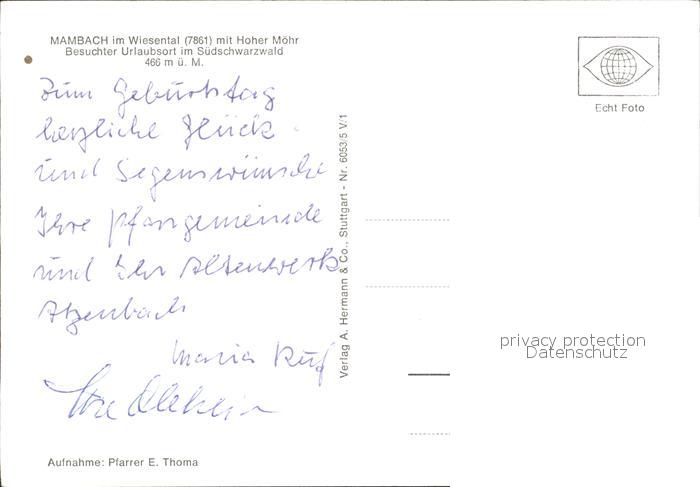 MAMBACH im Wiesental (7861) mit Hoher Möhr
Besuchter Urlaubsort im Südschwarzwald
466 m ü. M.
Zum Geburtstag
herzliche Glück-
und Segenswünsche
Ihre Pfarrgemeinde
und Ihr Altenwerk
Atzenbach
Maria Ruf
Verlag A. Hermann & Co., Stuttgart - Nr. 6053/5 V/1
Echt Foto
privacy protection
Datenschutz
Aufnahme: Pfarrer E. Thoma